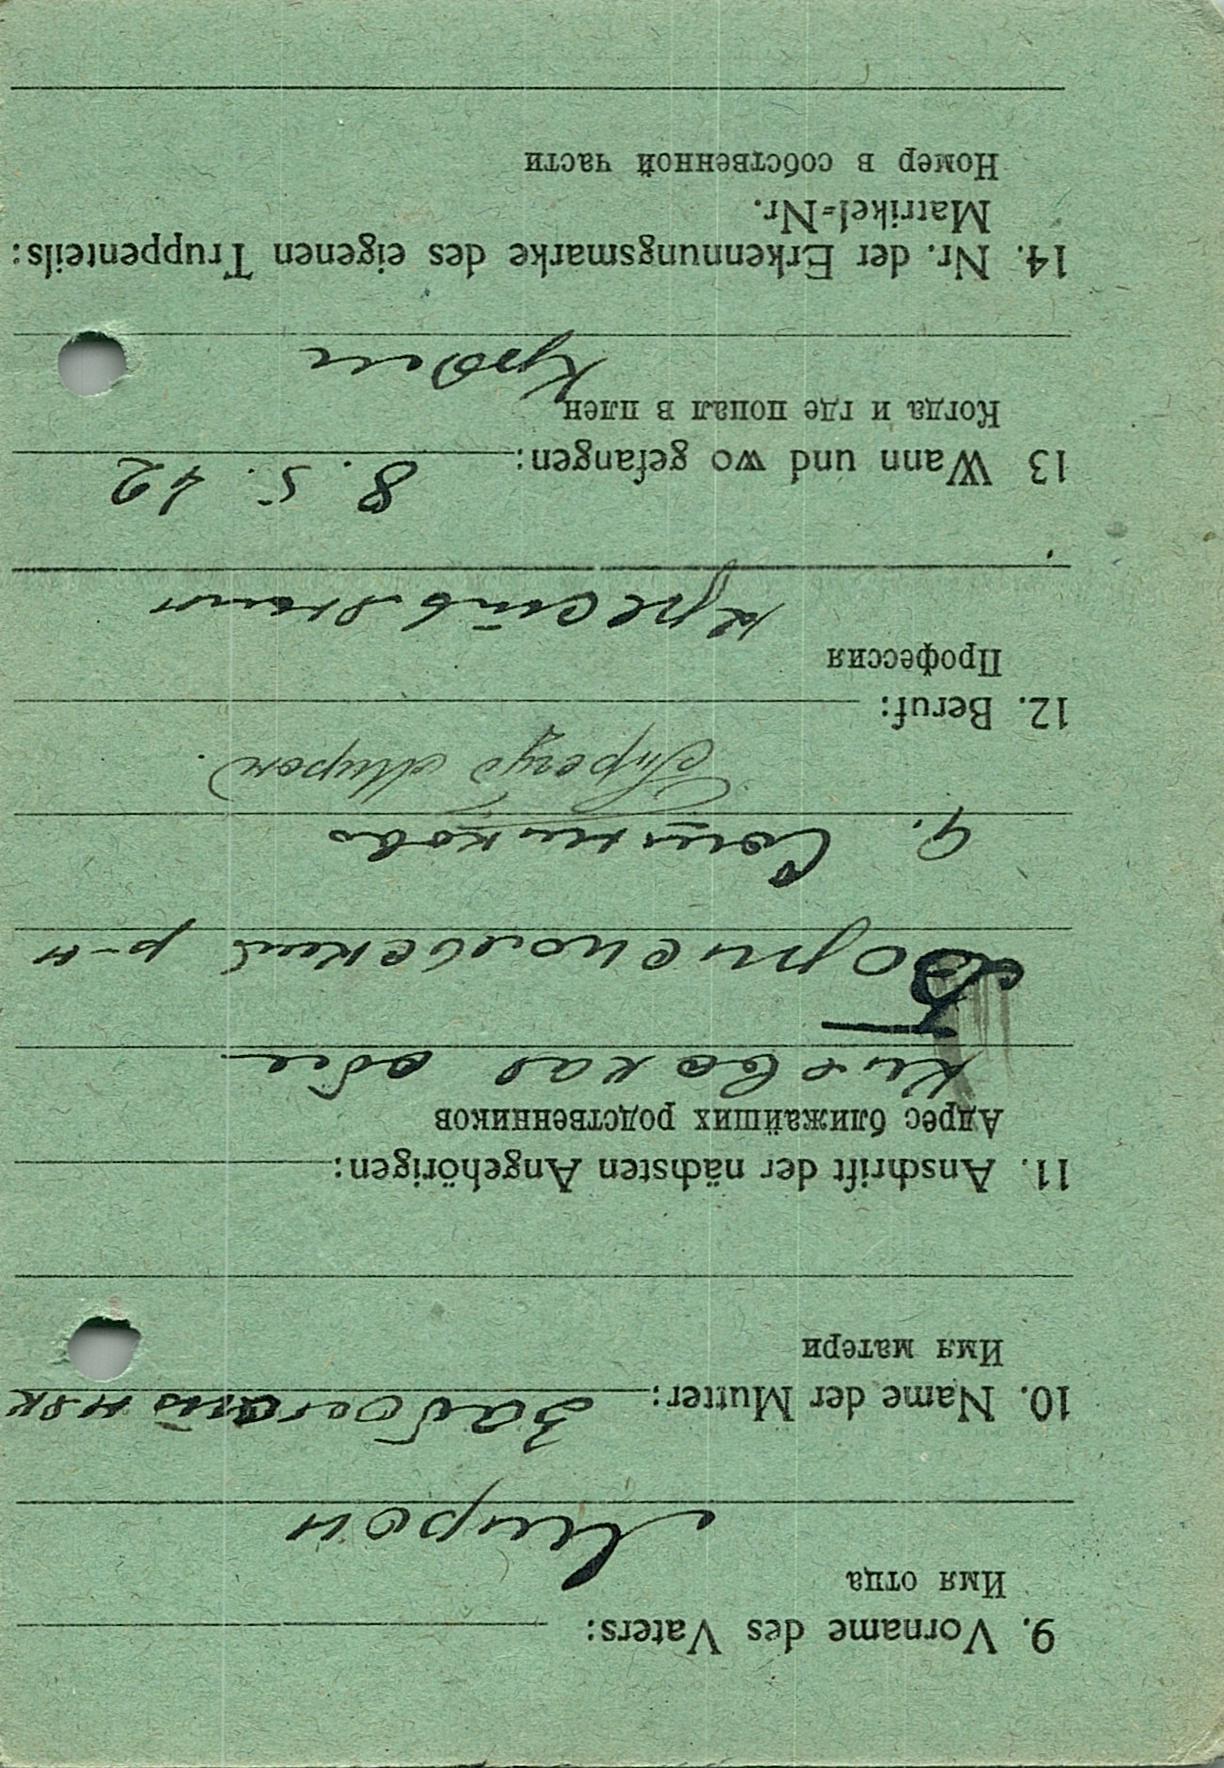 9. Vorname des Vaters:
Имя отца
Мирон
10. Name der Mutter:
Имя матери
11. Anschrift der nächsten Angehörigen:
Адрес ближайших родственников
Киевская обл
Бориспольский р-н
Мирон.
12. Beruf:
Профессия
крестьянин
13 Wann und wo gefangen: 8. 5. 42
Когда и где попал в плен
14. Nr. der Erkennungsmarke des eigenen Truppenteils:
Matrikel=Nr.
Номер в собственной части